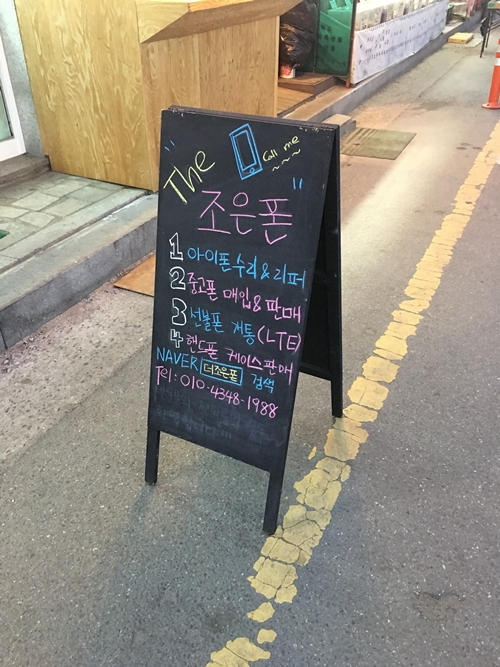 "The
call me
조은폰"
1 아이폰수리&리퍼
2 중고폰 매입&판매
3 선불폰 개통(LTE)
4 핸드폰 케이스판매
NAVER 더조은폰 검색
Tel: 010-4348-1988